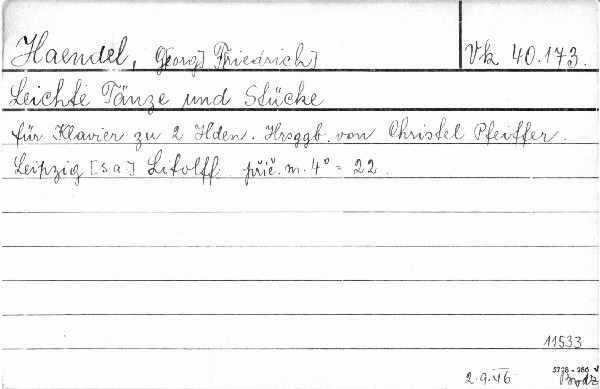 Haendel, G[eorg] Friedrich] Vk 40.173.
Leichte Tänze und Stücke
für Klavier zu 2 Hden. Hrsggb. von Christel Pfeiffer.
Leipzig [s.a.] Litolff. příč. m. 4° = 22.
11533
2.9.46